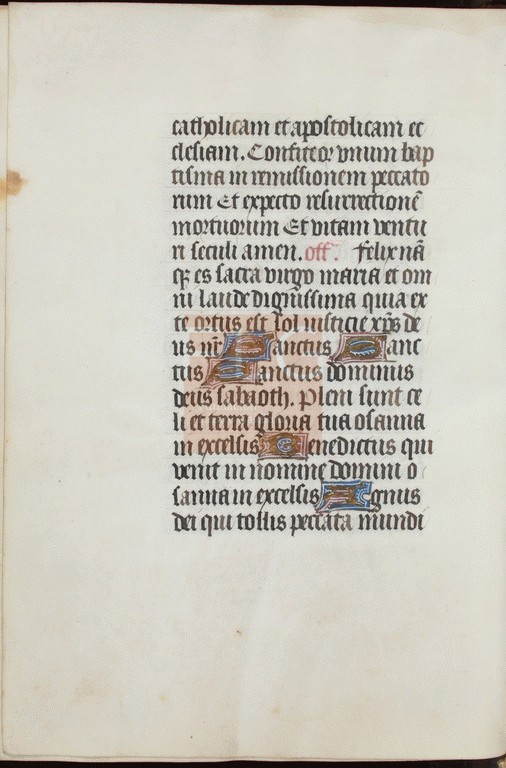 catholicam et apostolicam ec
clesiam. Confiteor vnum bap
tisma in remissionem peccato
rum Et expecto resurrectionē
mortuorum Et vitam ventu
ri seculi amen. off. Felix nā
qꝫ es sacra virgo maria et om
ni laude dignissima quia ex
te ortus est sol iusticie xp̄s de
us nr̄ Sanctus Sanc
tus Sanctus dominus
deus sabaoth. Pleni sunt ce
li et terra gloria tua osanna
in excelsis Benedictus qui
venit in nomine domini o
sanna in excelsis Agnus
dei qui tollis peccata mundi